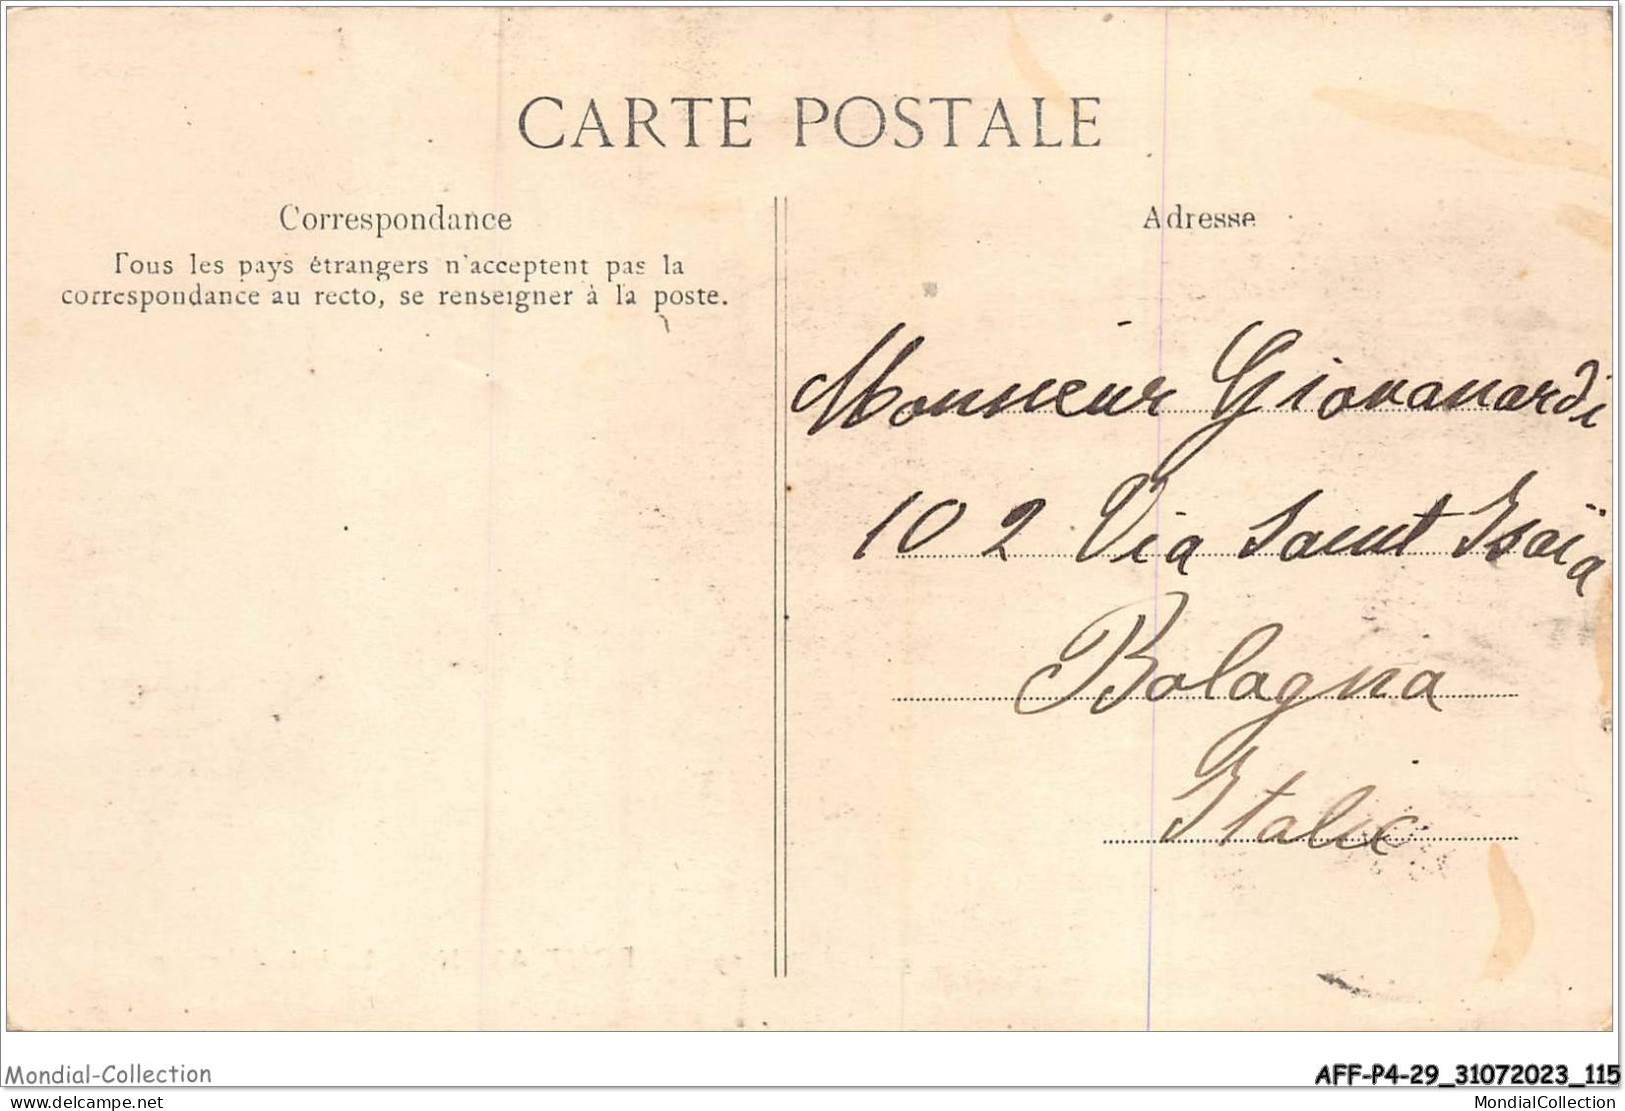 CARTE POSTALE
Correspondance
Tous les pays étrangers n'acceptent pas la
correspondance au recto, se renseigner à la poste.
Adresse
Monsieur Giovanardi
102 Via Saint Isaïa
Bologna
Italie
Mondial-Collection
AFF-P4-29_31072023_115
delcampe.net
MondialCollection